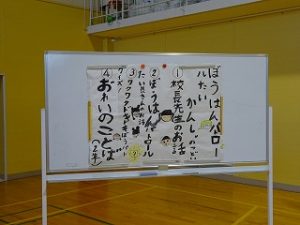 ぼうはんパトロー
ルたい
かんしゃのつどい
①校長先生のお話
②ぼうはんパトロール
たい
③
クイズ!
④おれいのことば
(2年)